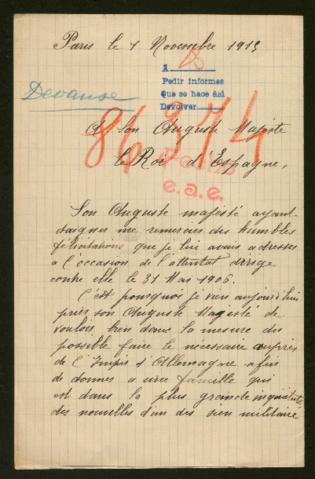 Paris le 1 Novembre 1915
A
Pedir informes
Que se hace asi
Devolver
Devanse
86374
A Son Auguste Majeste
le Roi d'Espagne,
e.a.e.
Son Auguste majesté ayant
daignée me remercier des humbles
félicitations que je lui avais adressés
a l'occasion de l'attentat dirigé
contre elle le 31 Mai 1906.
C'est pourquoi je viens aujourd'hui
prier son Auguste Magesté de
vouloir bien dans la mesure du
possible faire le nécessaire auprès
de l'Empire d'Allemagne afin
de donner a une famille qui
est dans la plus grande inquiétude
des nouvelles d'un des sien militaire